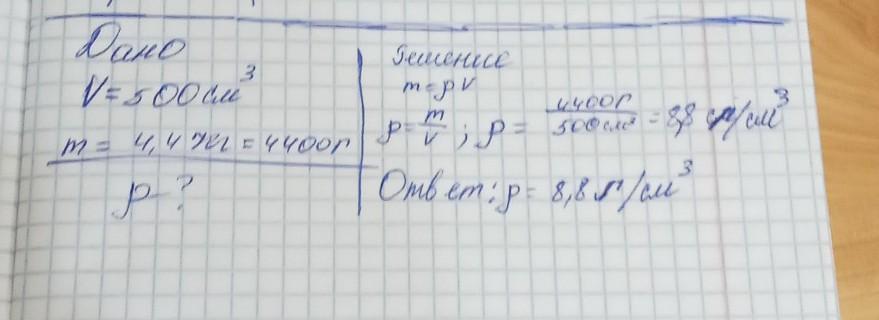 Дано
V = 500 см³
m = 4,4 кг = 4400г
ρ - ?
Решение
m = ρV
ρ = m/V ; ρ = 4400г/500см³ = 8,8 г/см³
Ответ: ρ = 8,8 г/см³